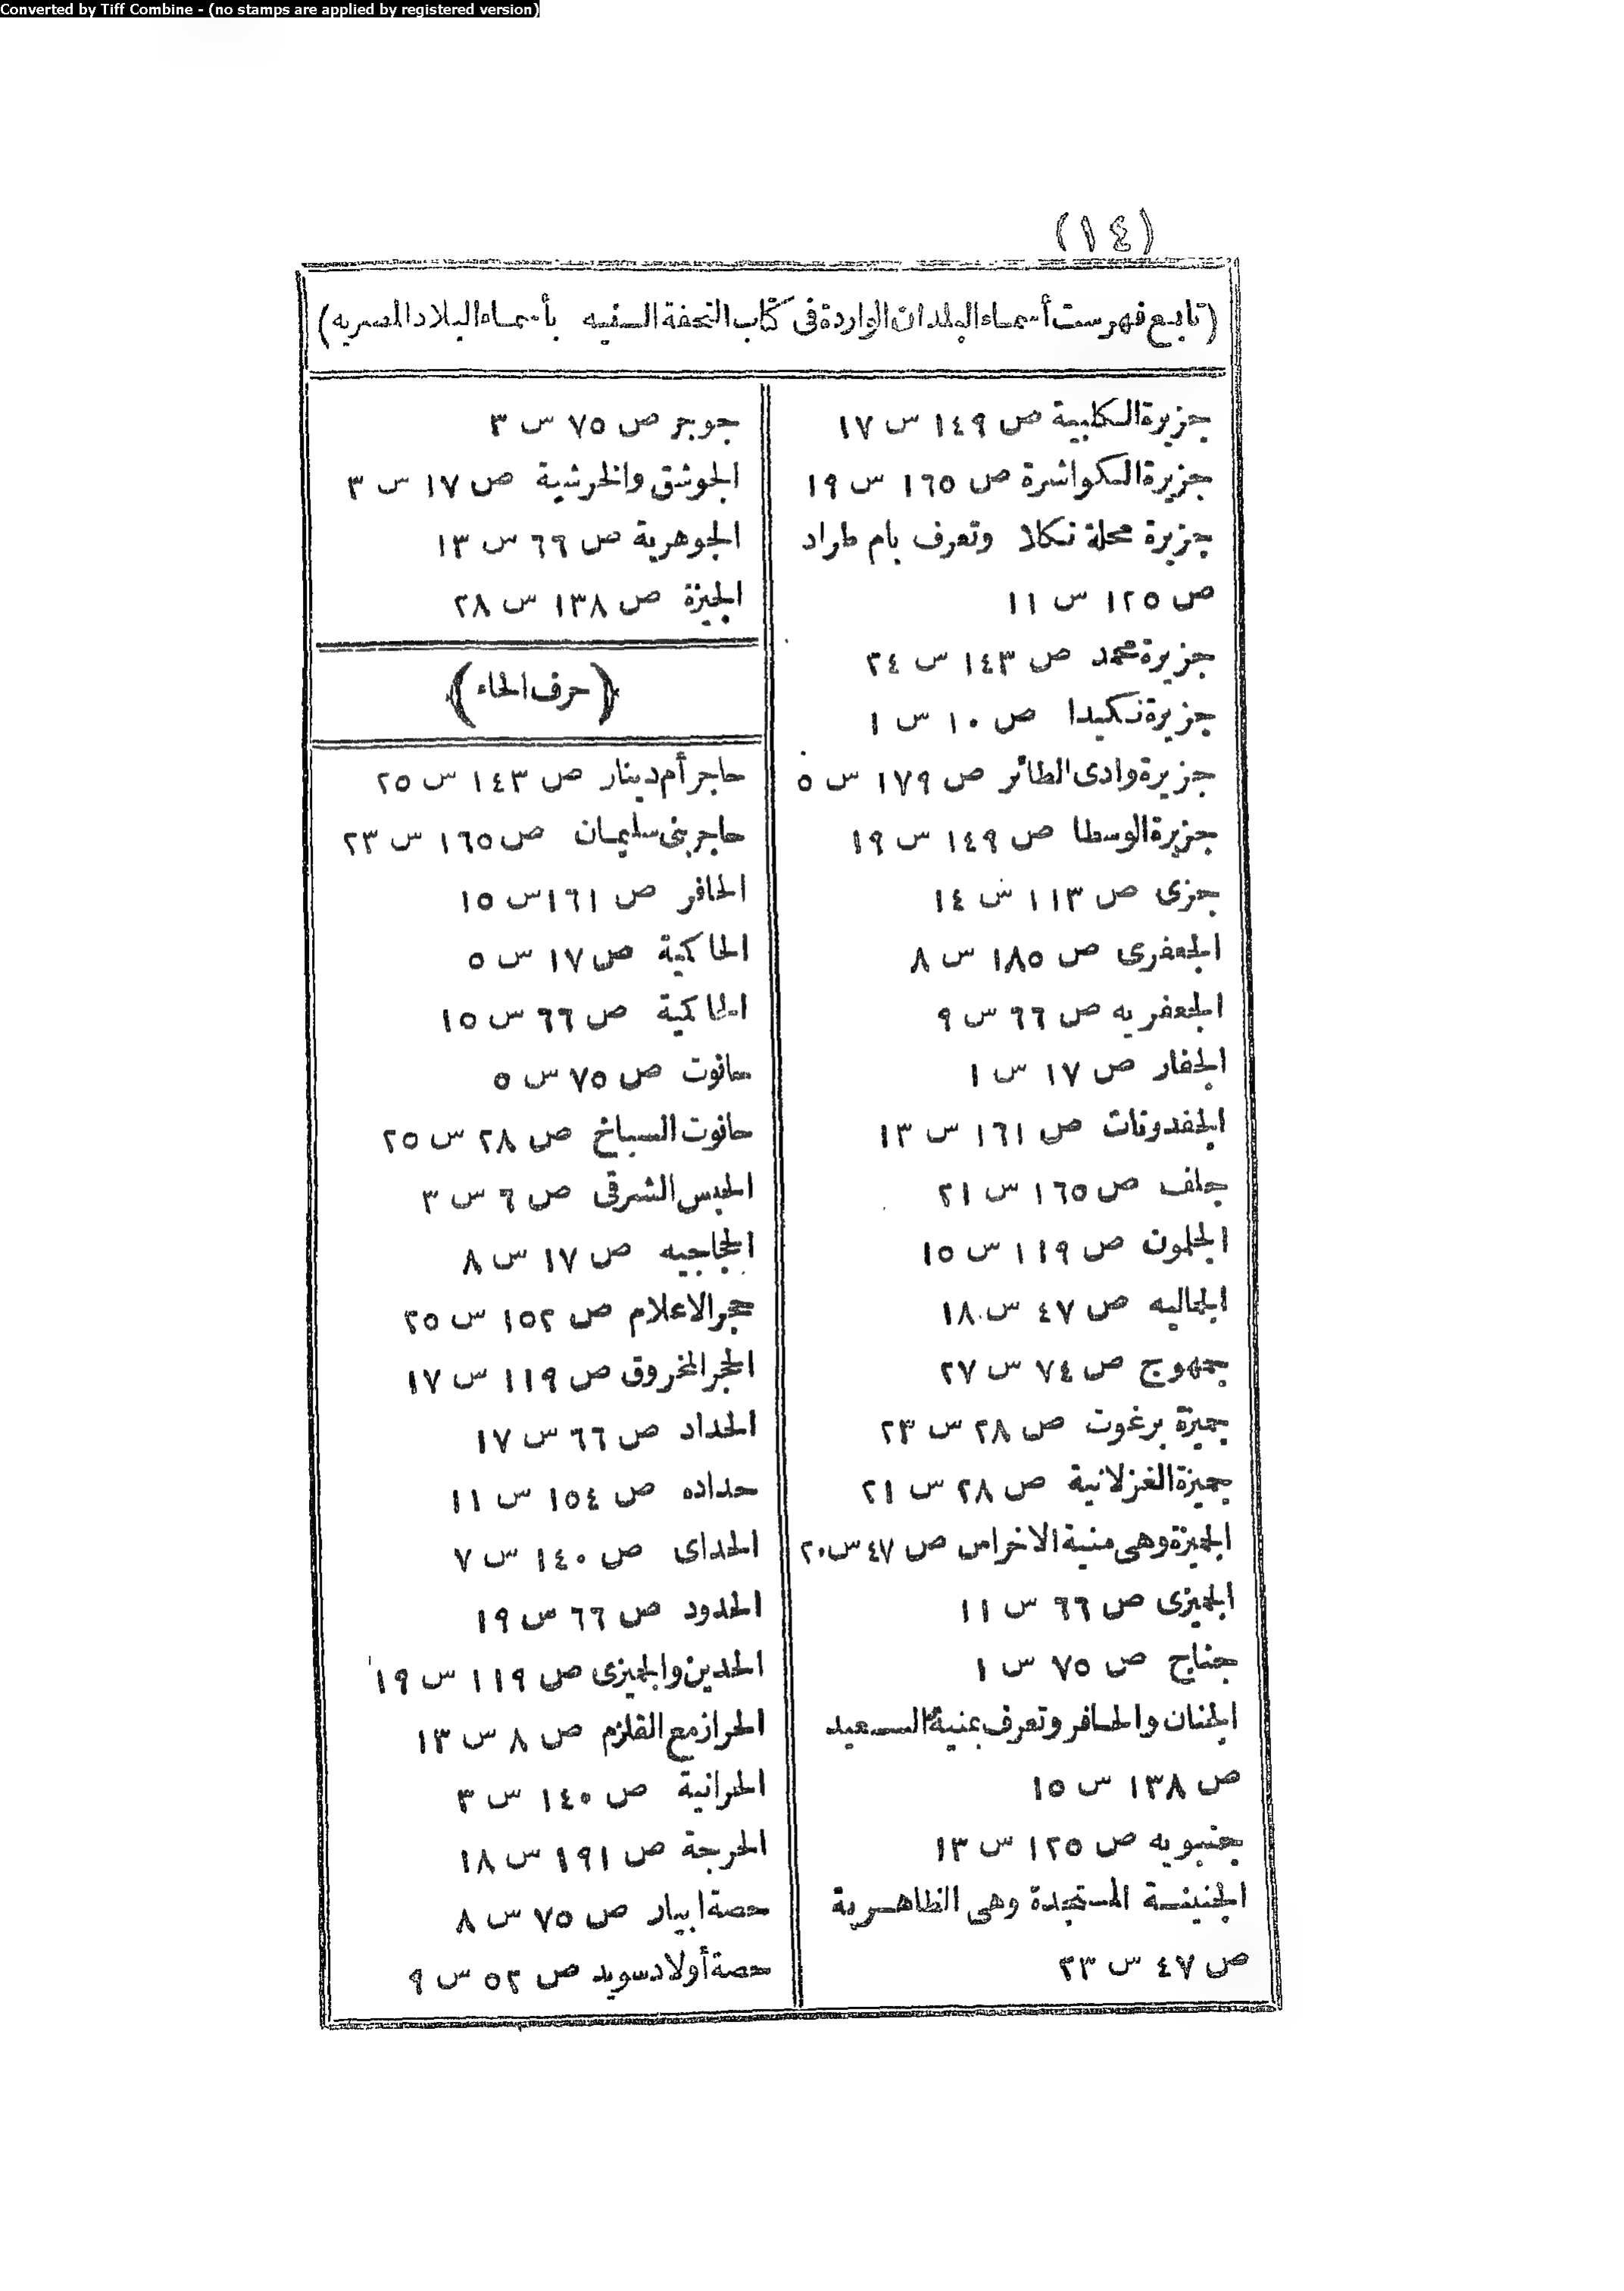 Converted by Tiff Combine - (no stamps are applied by registered version)
(١٤)
(تابع فهرست أسماء البلدان الواردة فى كتاب التحفة السنيه بأسماء البلاد المصريه)
جزيرة الكلبية ص ١٤٩ س ١٧
جزيرة الكواشرة ص ١٦٥ س ١٩
جزيرة محلة نكلا وتعرف بام طراد
ص ١٢٥ س ١١
جزيرة محمد ص ١٤٣ س ٢٤
جزيرة نكيدا ص ١٠ س ١
جزيرة وادى الطائر ص ١٧٩ س ٥
جزيرة الوسطا ص ١٤٩ س ١٩
جزى ص ١١٣ س ١٤
الجعفرى ص ١٨٥ س ٨
الجعفريه ص ٦٦ س ٩
الجفار ص ١٧ س ١
الجفدونات ص ١٦١ س ١٣
جلف ص ١٦٥ س ٢١
الجلمون ص ١١٩ س ١٥
الجماليه ص ٤٧ س ١٨
جمهوج ص ٧٤ س ٢٧
جميزة برغوت ص ٢٨ س ٢٣
جميزة الغزلانية ص ٢٨ س ٢١
الجميزة وهى منية الاخراس ص ٤٧ س ٢٠
الجميزى ص ٦٦ س ١١
جناج ص ٧٥ س ١
الجنان والحافر وتعرف بمنية السعيد
ص ١٣٨ س ١٥
جنبويه ص ١٢٥ س ١٣
الجنينة المستجدة وهى الظاهرية
ص ٤٧ س ٢٣
جوجر ص ٧٥ س ٣
الجوشق والخرشية ص ١٧ س ٣
الجوهرية ص ٦٦ س ١٣
الجيزة ص ١٣٨ س ٢٨
(حرف الحاء)
حاجر أم دينار ص ١٤٣ س ٢٥
حاجر بنى سليمان ص ١٦٥ س ٢٣
الحافر ص ١٦١ س ١٥
الحاكية ص ١٧ س ٥
الحاكمية ص ٦٦ س ١٥
حانوت ص ٧٥ س ٥
حانوت السباخ ص ٢٨ س ٢٥
الحبس الشرقى ص ٦ س ٣
الحجاجيه ص ١٧ س ٨
حجر الاعلام ص ١٥٢ س ٢٥
الحجر المخروق ص ١١٩ س ١٧
الحداد ص ٦٦ س ١٧
حداده ص ١٥٤ س ١١
الحداى ص ١٤٠ س ٧
الحدود ص ٦٦ س ١٩
الحدين والجميزى ص ١١٩ س ١٩
الحراز مع القلزم ص ٨ س ١٣
الحرانية ص ١٤٠ س ٣
الحرجة ص ١٩١ س ١٨
حصة ابيار ص ٧٥ س ٨
حصة أولاد سويد ص ٥٢ س ٩